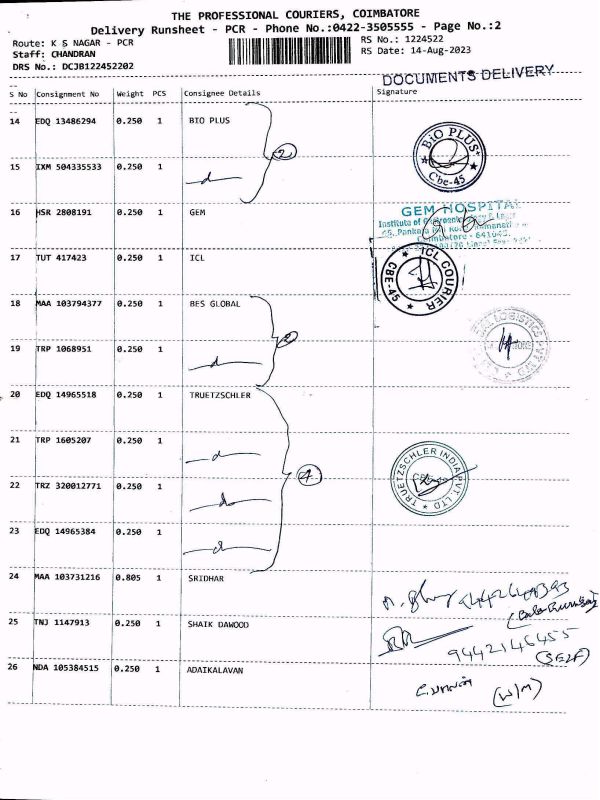 THE PROFESSIONAL COURIERS, COIMBATORE
Delivery Runsheet - PCR - Phone No.:0422-3505555 - Page No.:2
Route: K S NAGAR - PCR
RS No.: 1224522
Staff: CHANDRAN
RS Date: 14-Aug-2023
DRS No.: DCJB122452202
DOCUMENTS DELIVERY
S No Consignment No Weight PCS Consignee Details Signature
14 EDQ 13486294 0.250 1 BIO PLUS
2
BIO PLUS
Cbe-45
15 IXM 504335533 0.250 1
16 HSR 2808191 0.250 1 GEM
GEM HOSPITAL
Institute of
Coimbatore - 641045.
17 TUT 417423 0.250 1 ICL
ICL COURIER
CBE-45
18 MAA 103794377 0.250 1 BES GLOBAL
2
LOGISTICS PVT LTD
19 TRP 1068951 0.250 1
20 EDQ 14965518 0.250 1 TRUETZSCHLER
21 TRP 1605207 0.250 1
4
TRUETZSCHLER INDIA PVT. LTD
22 TRZ 320012771 0.250 1
23 EDQ 14965384 0.250 1
24 MAA 103731216 0.805 1 SRIDHAR
25 TNJ 1147913 0.250 1 SHAIK DAWOOD
9442146455
(SELF)
26 NDA 105384515 0.250 1 ADAIKALAVAN
(W/M)